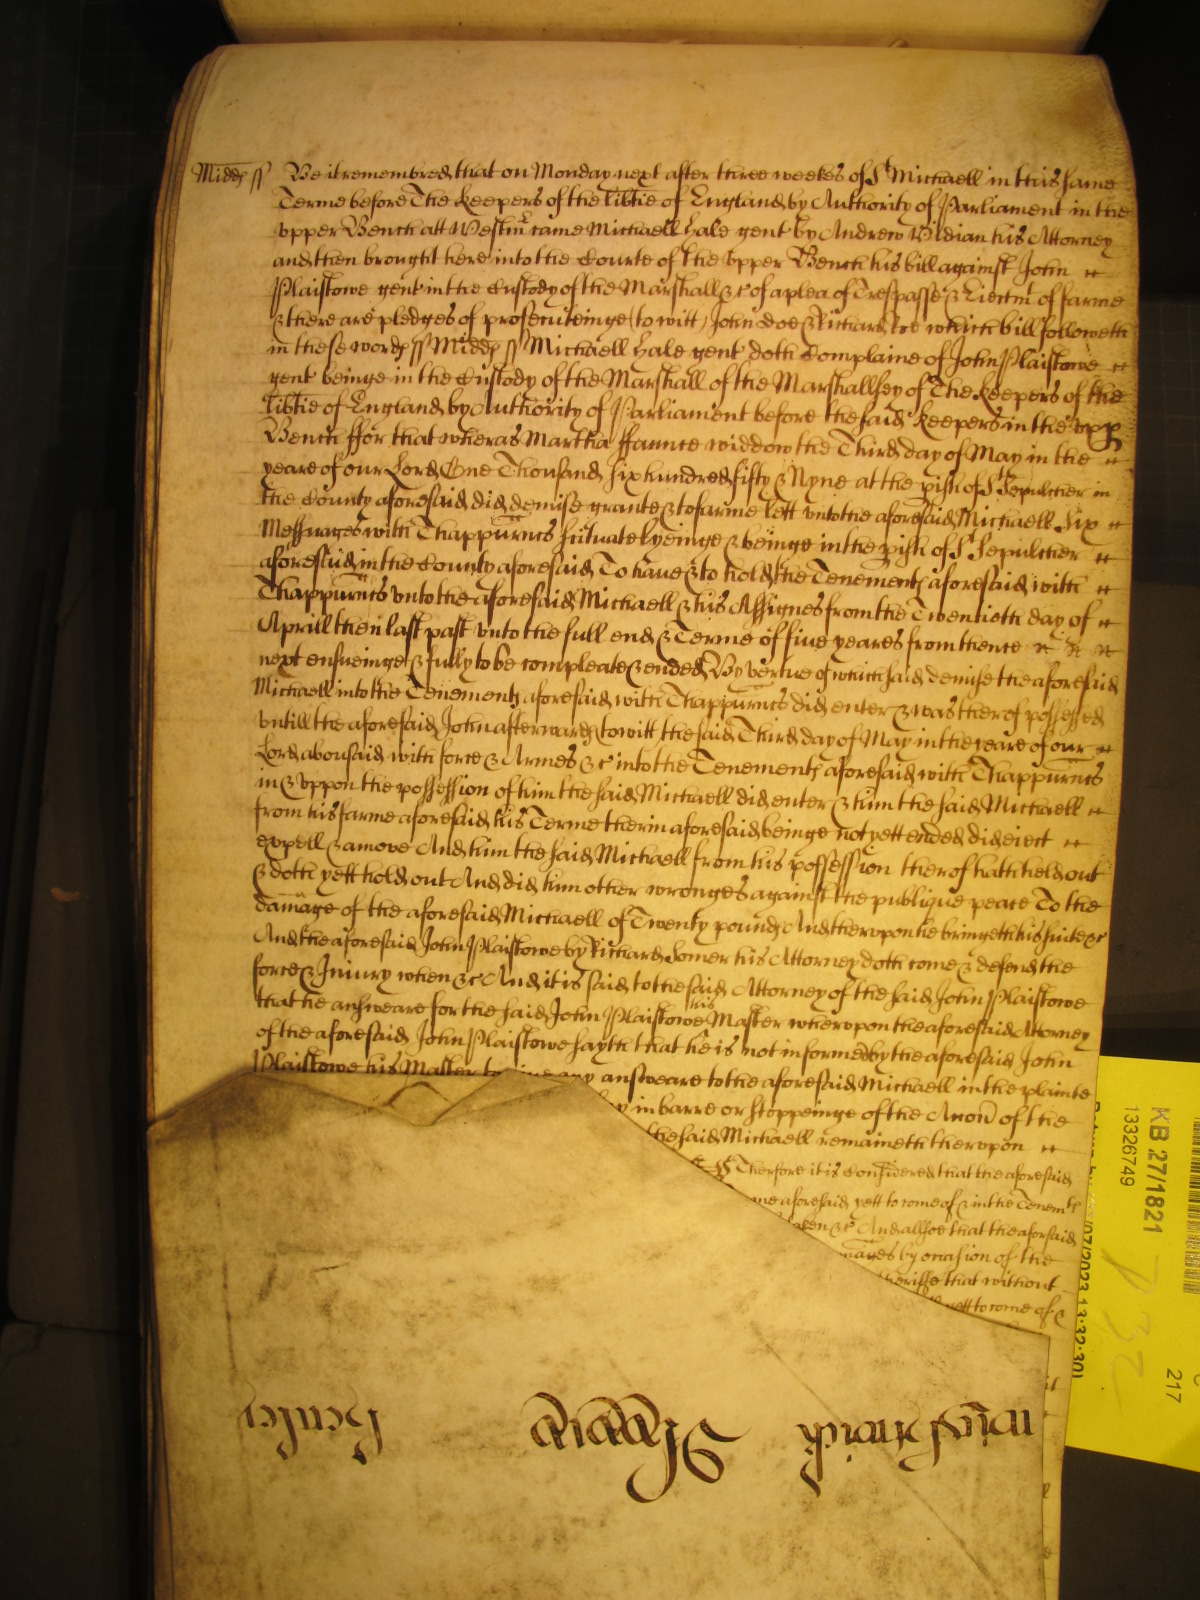 Midds ss Be it remembred that on Monday next after three weekes of St Michaell in this same
Terme before The Keepers of the libtie of England by Authority of Parliament in the
upper Bench att Westmr came Michaell Hale gent by Andrew Vidian his Attorney
and then brought here into the Courte of the upper Bench his bill against John
Plaistowe gent in the Custody of the Marshall &c of a plea of Trespasse & Eiectmt of farme
& there are pledges of prosecuteinge (to witt) John doe & Richard roe which bill followeth
in these words ss Midds ss Michaell Hale gent doth Complaine of John Plaistowe
gent beinge in the Custody of the Marshall of the Marshallsey of The Keepers of the
libtie of England by Authority of Parliament before the said Keepers in the upp
Bench ffor that wheras Martha ffaunce widdow the Third day of May in the
yeare of our Lord One Thousand six hundred fifty & Nyne at the pish of St Sepulcher in
the County aforesaid did demise grante & to farme lett unto the aforesaid Michaell Six
Messuages with Thappurtncs scituate lyeinge & beinge in the pish of St Sepulcher
aforesaid in the County aforesaid To have & to hold the Tenements aforesaid with
Thappurtncs unto the aforesaid Michaell & his Assignes from the Twentieth day of
Aprill then last past unto the full end & Terme of five yeares from thence
next ensueinge & fully to be compleate & ended By vertue of which said demise the aforesaid
Michaell into the Tenements aforesaid with Thappurtncs did enter & was therof possessed
untill the aforesaid John afterwards to witt the said Third day of May in the yeare of our
Lord abousaid with force & Armes &c into the Tenements aforesaid with Thappurtncs
in & uppon the possession of him the said Michaell did enter & him the said Michaell
from his farme aforesaid his Terme therin aforesaid beinge not yett ended did eiect
expell & amove And him the said Michaell from his possession therof hath held out
& doth yett hold out And did him other wronges against the publique peace To the
damage of the aforesaid Michaell of Twenty pounds And therupon he bringeth his suite &c
And the aforesaid John Plaistowe by Richard Somer his Attorney doth come & defend the
force & Iniury when &c And it is said to the said Attorney of the said John Plaistowe
that he answeare for the said John Plaistowe his Master wherupon the aforesaid Attorney
of the aforesaid John Plaistowe sayth that he is not informed by the aforesaid John
Plaistowe his Master to give any answeare to the aforesaid Michaell in the plainte
in barre or stoppeinge of the Accon of the
the said Michaell remaineth therupon
Therfore it is Considered that the aforesaid
aforesaid yett to come of & in the Tenemts
&c And allsoe that the aforsaid
by occasion of the
that without
yett to come of &
KB 27/1821
13326749
217
07/2023 13:32:30)